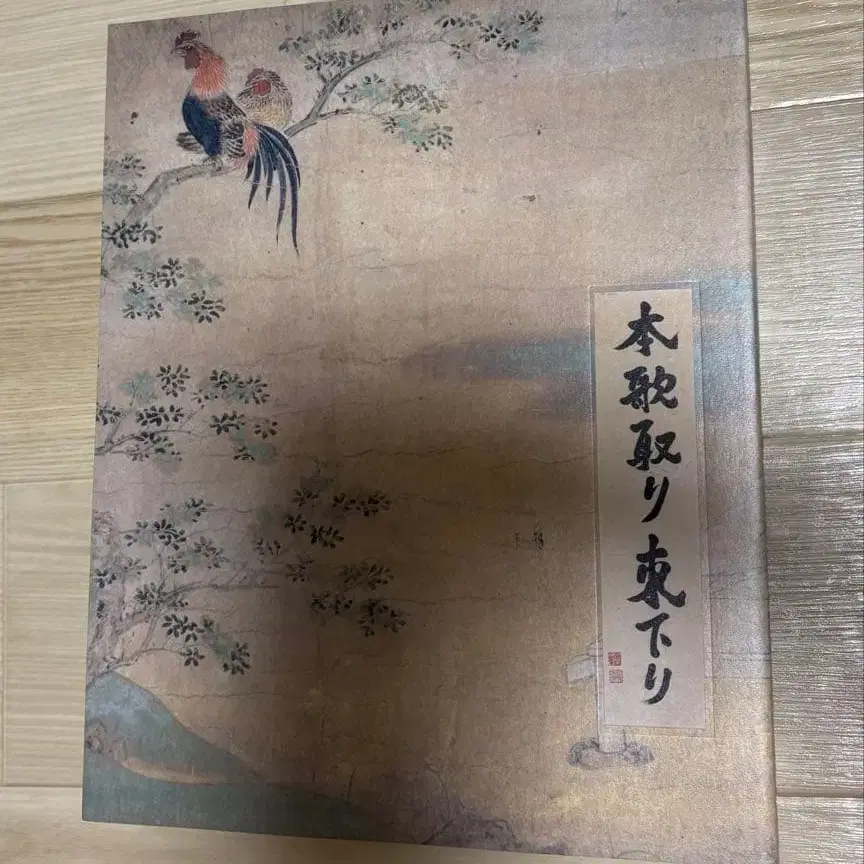 本歌取り 東下り